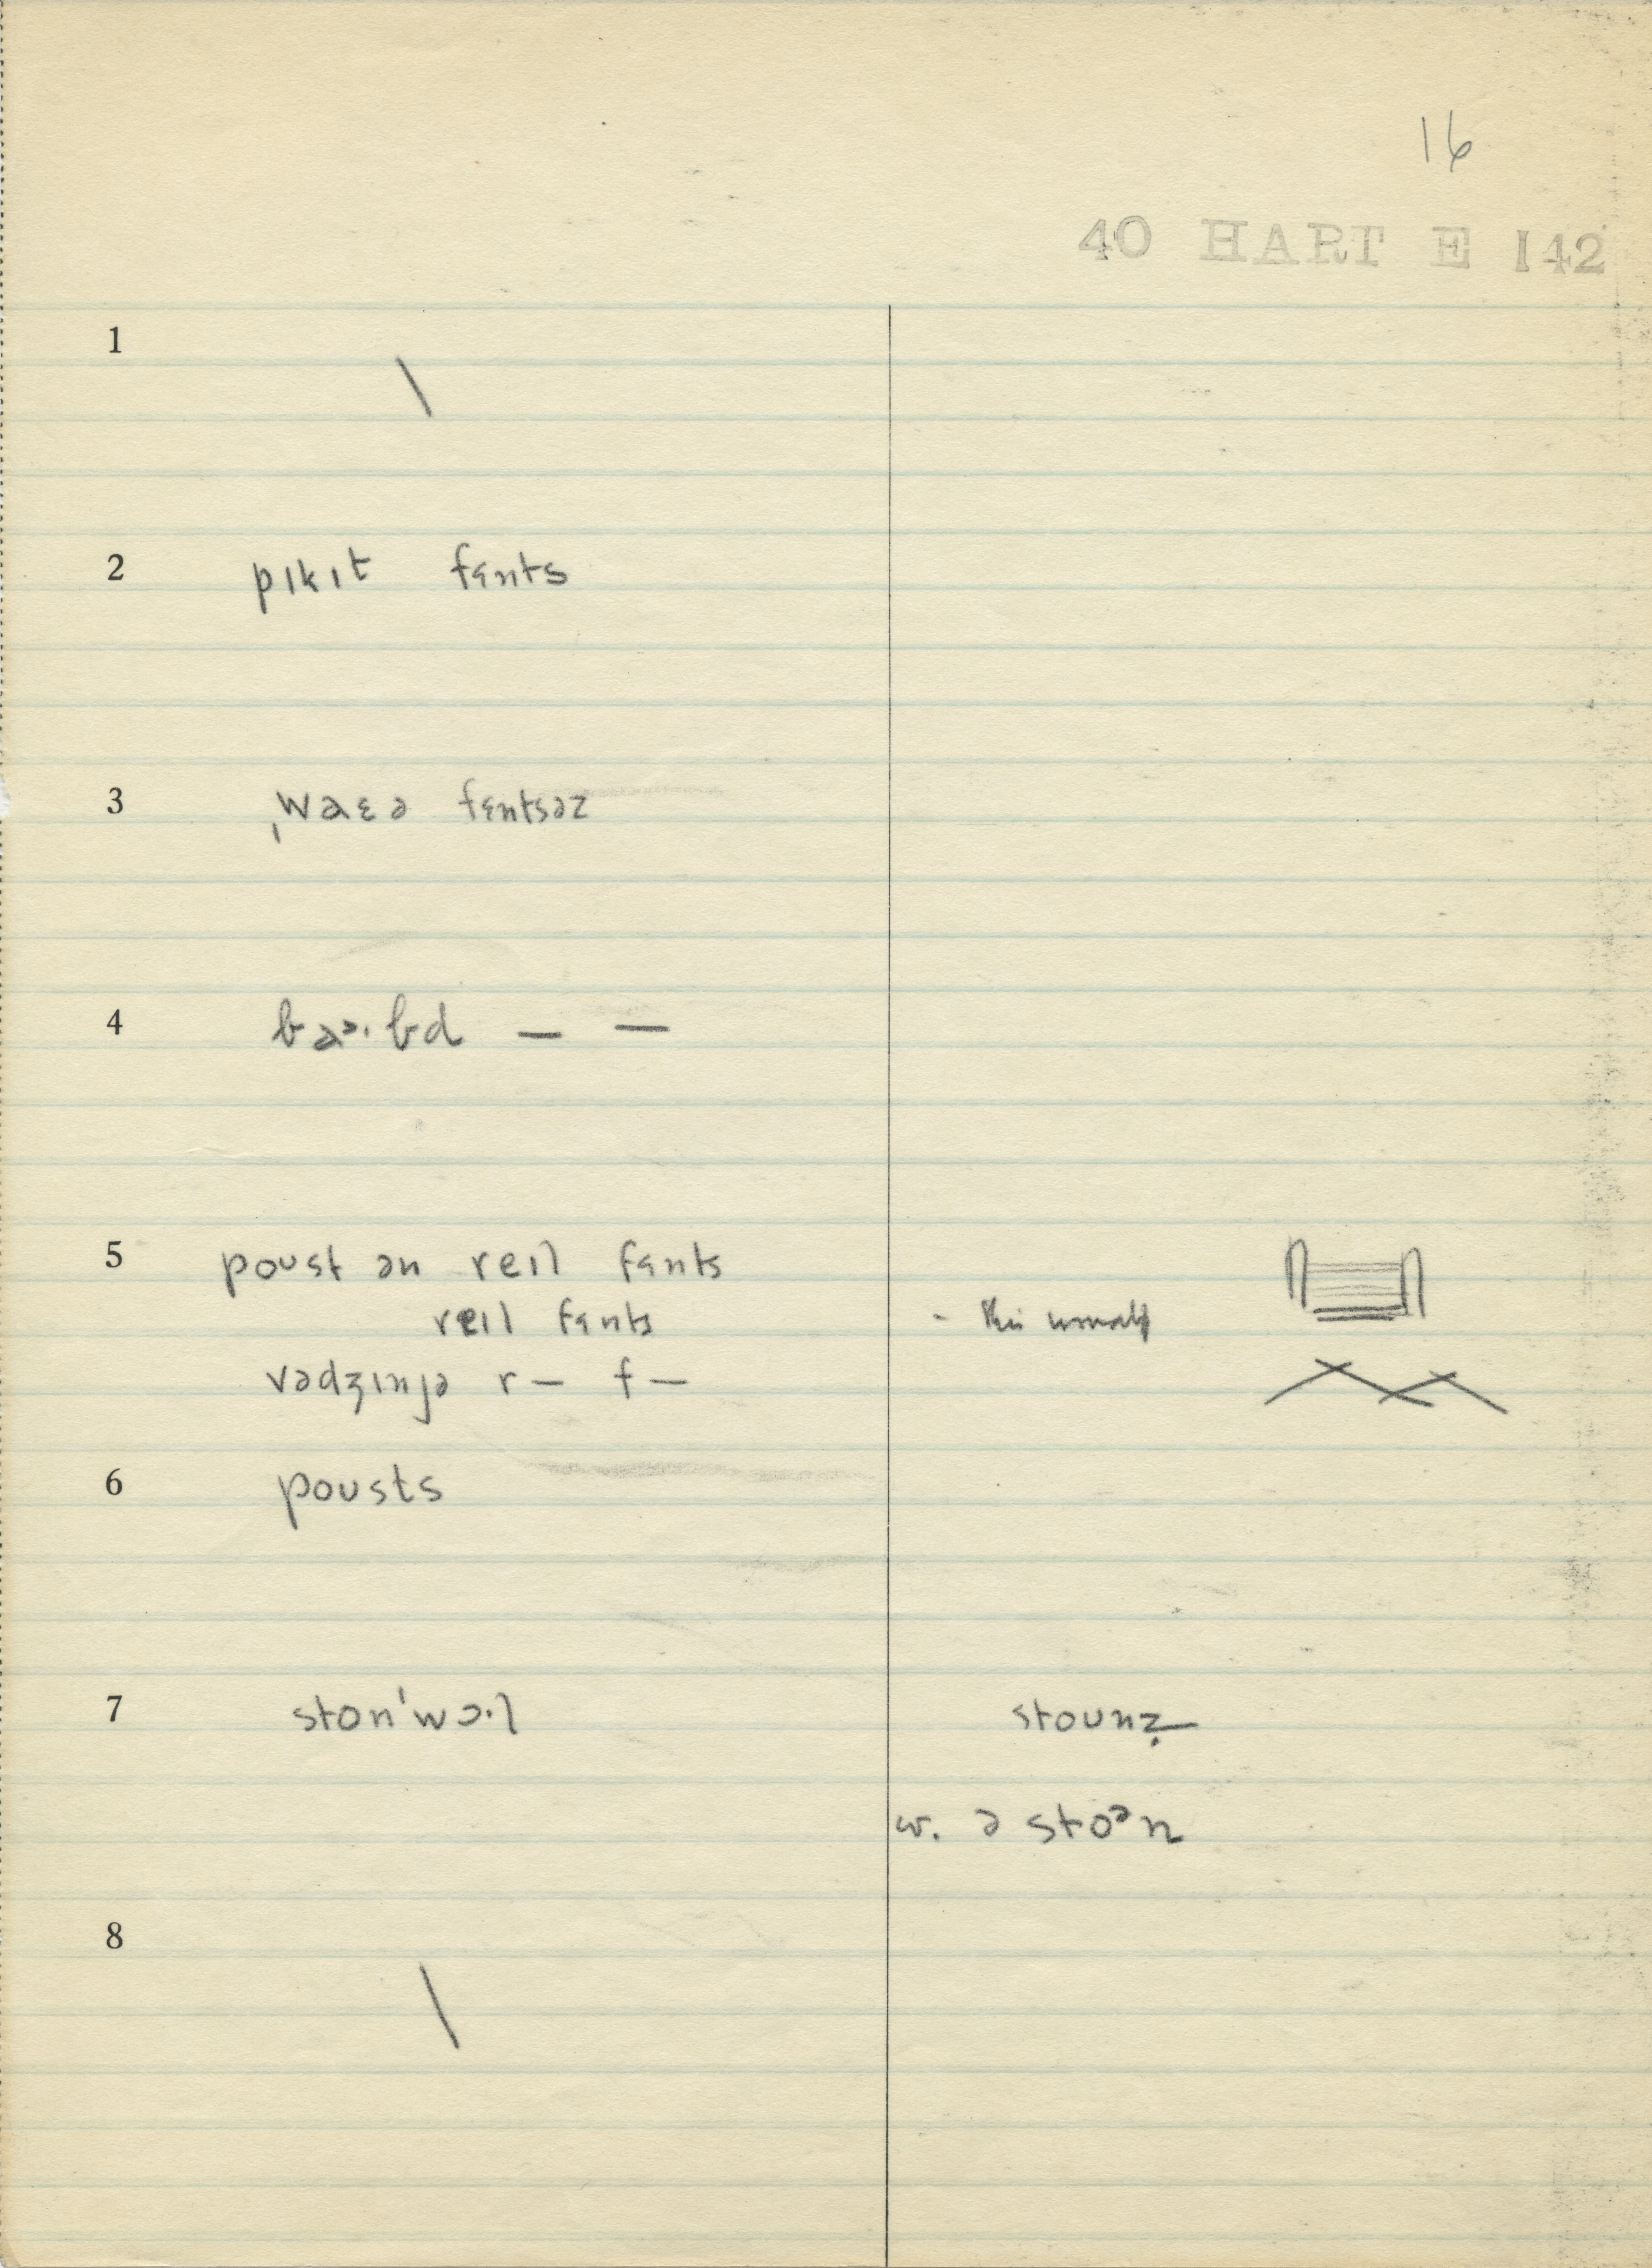 16
40 HART E 142
1 \
2 pɪkɪt fɛnts
3 ˌwaɛə fɛntsəz
4 baᵊ·bd — —
5 poust ən reɪl fɛnts
reɪl fɛnts -
vədʒɪnjə r— f—
6 pousts
7 ston'wɔ·l stounz
w. ə stoᵊn
8 \